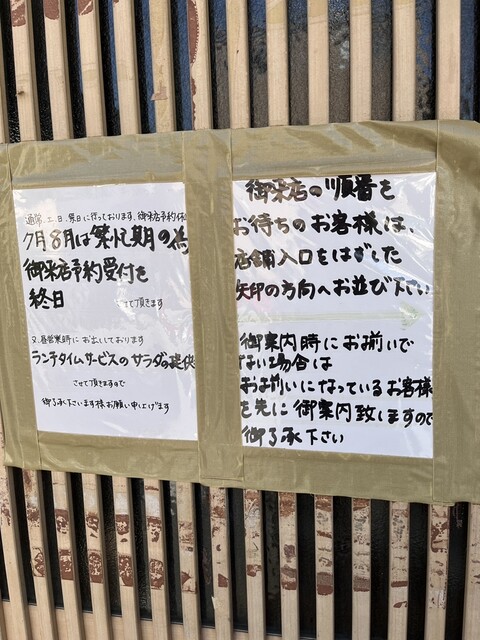 通常、土、日、祭日に行っております、御来店予約休
7月8月は繁忙期の為
御来店予約受付を
終日 させて頂きます
又、昼営業時にお出ししております
ランチタイムサービスのサラダの提供
させて頂きますので
御了承下さいます様お願い申し上げます
御来店の順番を
お待ちのお客様は、
店舗入口をはずした
矢印の方向へお並び下さい
御案内時にお揃いで
ない場合は
お揃いになっているお客様
を先に御案内致しますので
御了承下さい